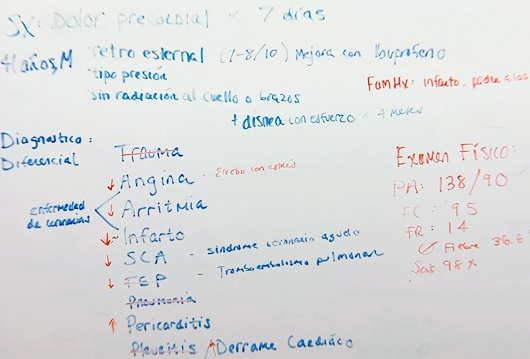 Sx: Dolor precordial ~ 7 días
41 años, M
retro esternal (7-8/10) Mejora con Ibuprofeno
tipo presión
sin radiación al cuello o brazos
+ disnea con esfuerzo × 4 meses
FamHx: infarto, padre a los
Diagnostico:
Diferencial
Trauma
↓ Angina - Electro con estrés
enfermedad de coronarias
↓ Arritmia
↓~ Infarto
↓ SCA - sindrome coronario agudo
↓ TEP - Tromboembolismo pulmonar
Pneumonia
↑ Pericarditis
Pleuritis ↑ Derrame Cardíaco
Examen Físico:
PA: 138/90
FC: 95
FR: 14
Fiebre 36.6
Sat 98%